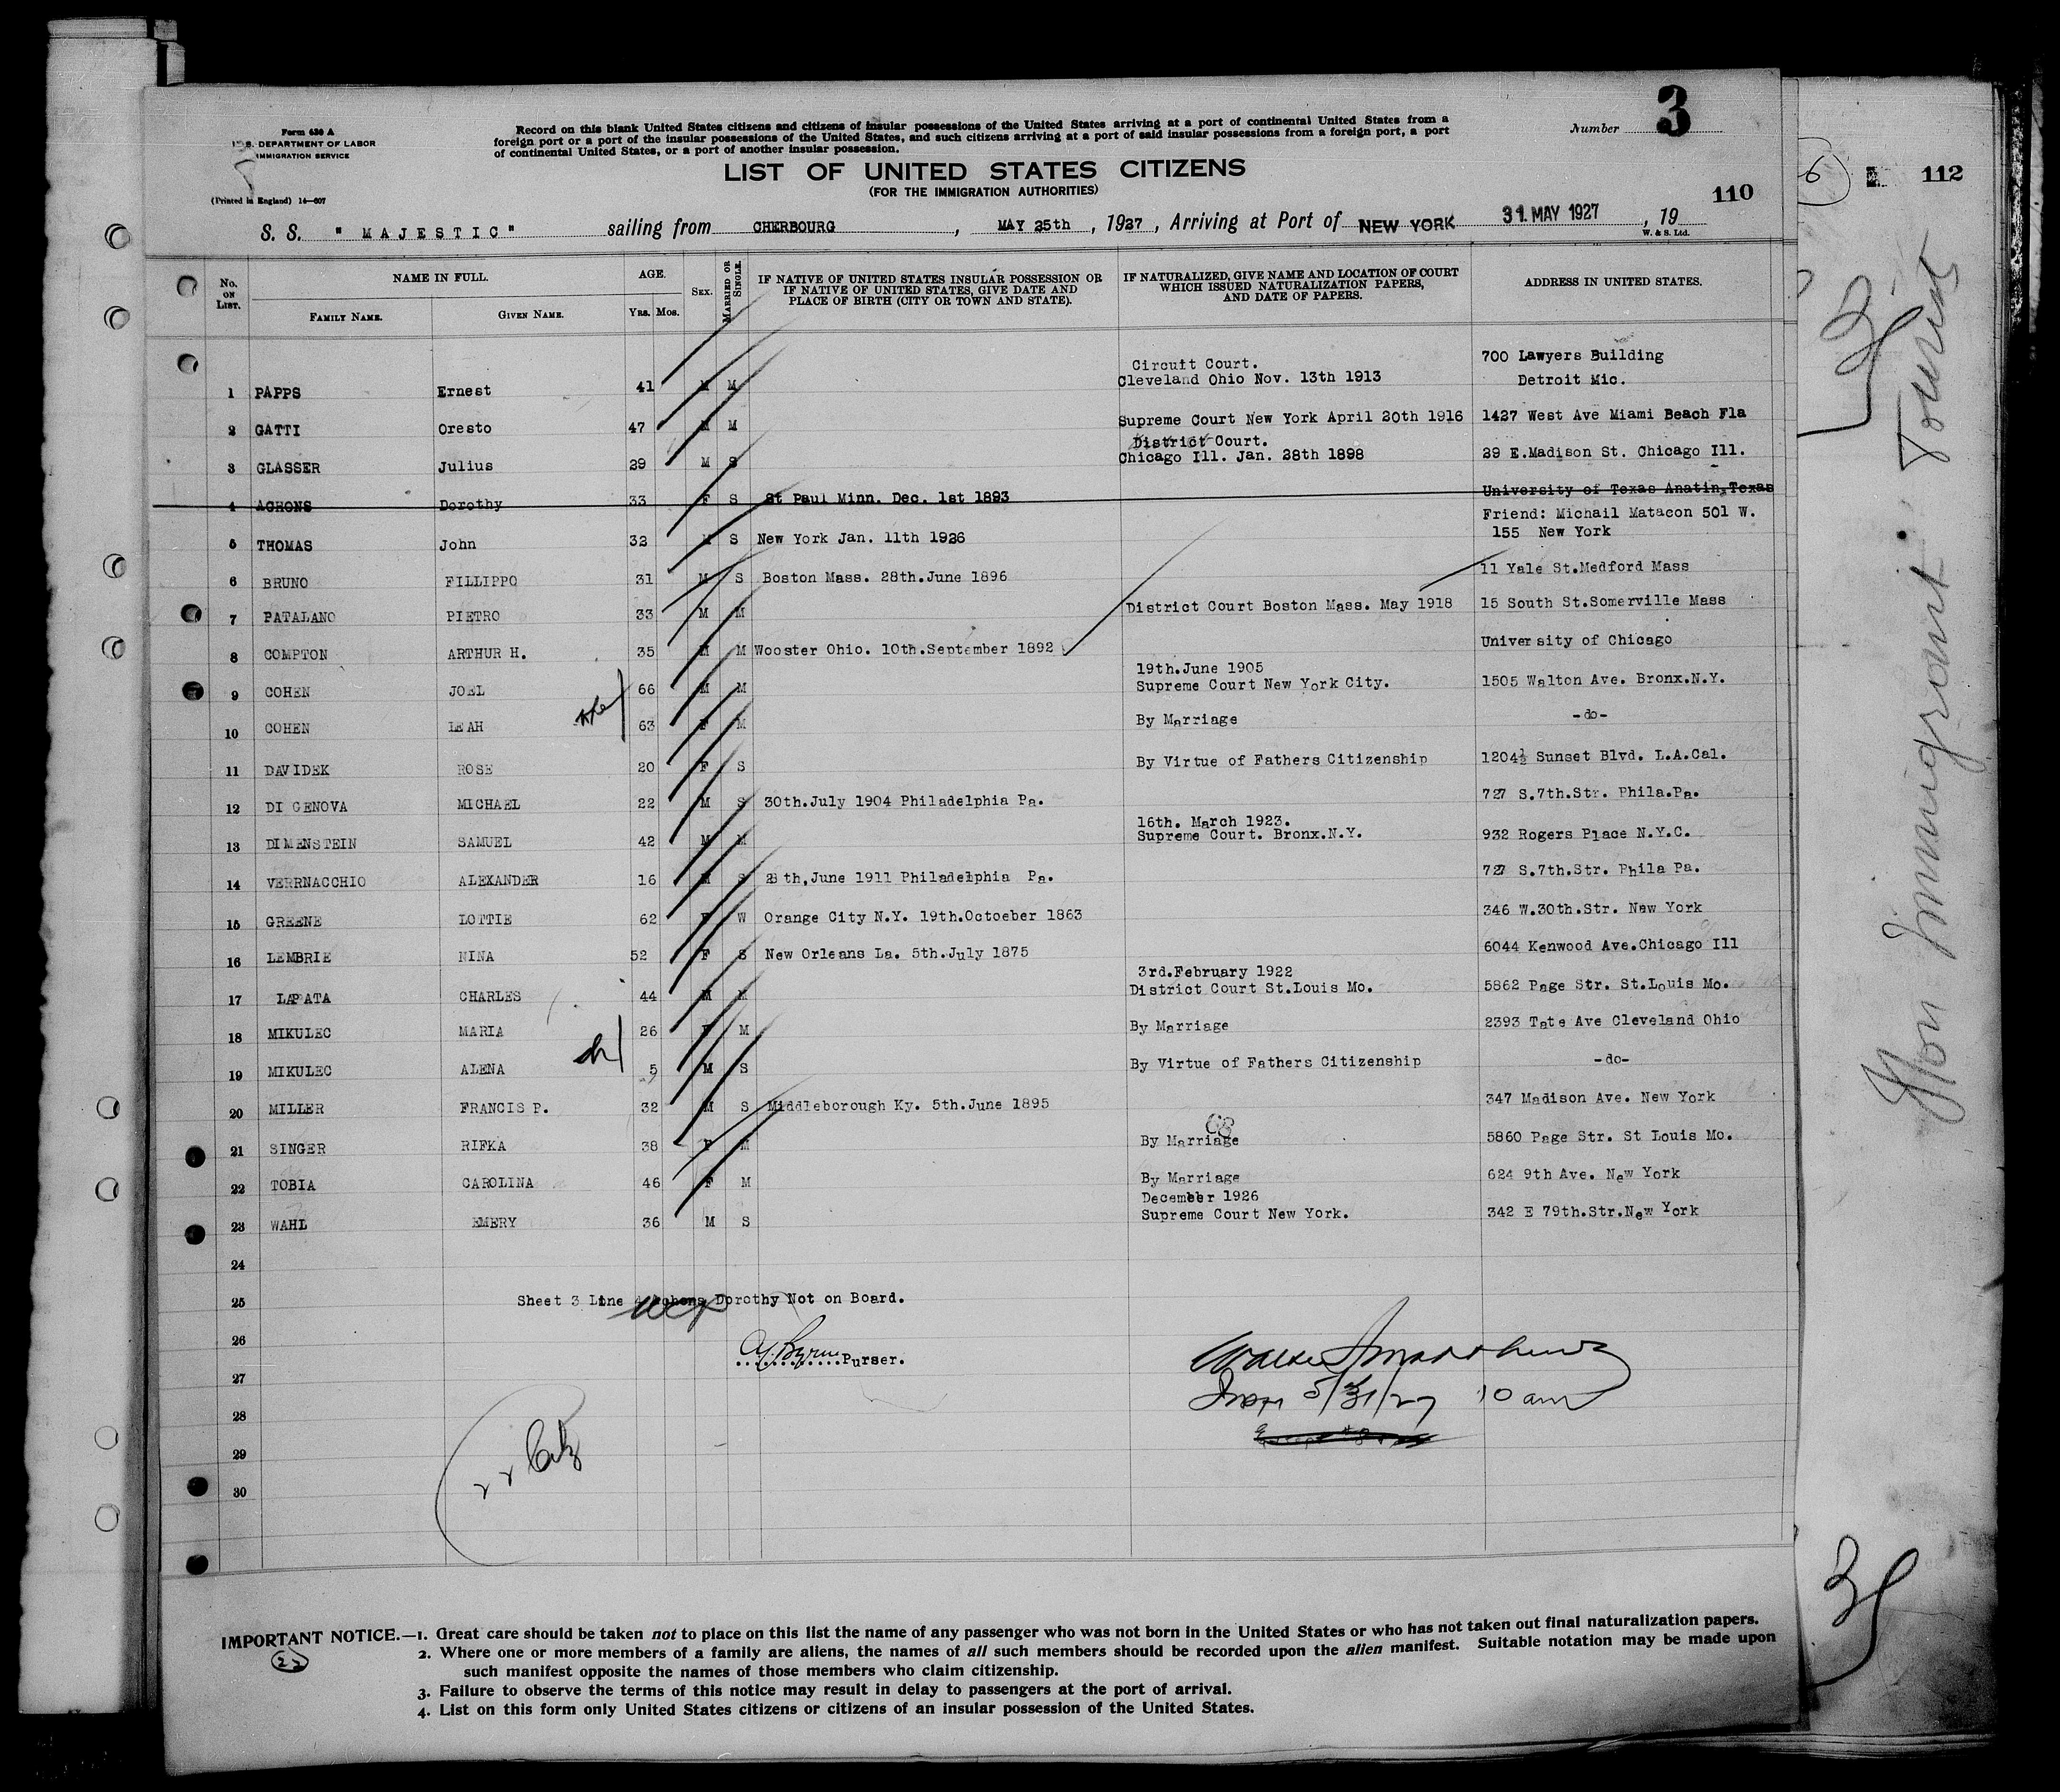 Form 630 A
U.S. DEPARTMENT OF LABOR
IMMIGRATION SERVICE
(Printed in England) 14—607
Record on this blank United States citizens and citizens of insular possessions of the United States arriving at a port of continental United States from a
foreign port or a port of the insular possessions of the United States, and such citizens arriving at a port of said insular possessions from a foreign port, a port
of continental United States, or a port of another insular possession.
Number 3
LIST OF UNITED STATES CITIZENS
(FOR THE IMMIGRATION AUTHORITIES)
110
112
S. S. "MAJESTIC" sailing from CHERBOURG, MAY 25th, 1927, Arriving at Port of NEW YORK 31. MAY 1927, 19
W. & S. Ltd.
No. ON LIST. NAME IN FULL. AGE. SEX. MARRIED OR SINGLE. IF NATIVE OF UNITED STATES INSULAR POSSESSION OR IF NATIVE OF UNITED STATES, GIVE DATE AND PLACE OF BIRTH (CITY OR TOWN AND STATE). IF NATURALIZED, GIVE NAME AND LOCATION OF COURT WHICH ISSUED NATURALIZATION PAPERS, AND DATE OF PAPERS. ADDRESS IN UNITED STATES.
FAMILY NAME. GIVEN NAME. YRS. MOS.
Circuit Court. 700 Lawyers Building
1 PAPPS Ernest 41 M M Cleveland Ohio Nov. 13th 1913 Detroit Mic.
2 GATTI Oresto 47 M M Supreme Court New York April 20th 1916 1427 West Ave Miami Beach Fla
District Court.
3 GLASSER Julius 29 M S Chicago Ill. Jan. 28th 1898 29 E.Madison St. Chicago Ill.
4 ACHONS Dorothy 33 F S St Paul Minn. Dec. 1st 1893 University of Texas Anatin,Texas
Friend: Michail Matacon 501 W.
5 THOMAS John 32 M S New York Jan. 11th 1926 155 New York
6 BRUNO FILLIPPO 31 M S Boston Mass. 28th.June 1896 11 Yale St.Medford Mass
7 PATALANO PIETRO 33 M M District Court Boston Mass. May 1918 15 South St.Somerville Mass
8 COMPTON ARTHUR H. 35 M M Wooster Ohio. 10th.September 1892 University of Chicago
19th.June 1905
9 COHEN JOEL 66 M M Supreme Court New York City. 1505 Walton Ave. Bronx.N.Y.
10 COHEN LEAH 63 F M By Marriage -do-
11 DAVIDEK ROSE 20 F S By Virtue of Fathers Citizenship 1204½ Sunset Blvd. L.A.Cal.
12 DI GENOVA MICHAEL 22 M S 30th.July 1904 Philadelphia Pa. 727 S.7th.Str. Phila.Pa.
16th. March 1923.
13 DIMENSTEIN SAMUEL 42 M M Supreme Court. Bronx.N.Y. 932 Rogers Place N.Y.C.
14 VERRNACCHIO ALEXANDER 16 M S 28th,June 1911 Philadelphia Pa. 727 S.7th.Str. Phila Pa.
15 GREENE LOTTIE 62 F W Orange City N.Y. 19th.Octoeber 1863 346 W.30th.Str. New York
16 LEMBRIE NINA 52 F S New Orleans La. 5th.July 1875 6044 Kenwood Ave.Chicago Ill
3rd.February 1922
17 LAPATA CHARLES 44 M M District Court St.Louis Mo. 5862 Page Str. St.Louis Mo.
18 MIKULEC MARIA 26 F M By Marriage 2393 Tate Ave Cleveland Ohio
19 MIKULEC ALENA 5 M S By Virtue of Fathers Citizenship -do-
20 MILLER FRANCIS P. 32 M S Middleborough Ky. 5th.June 1895 347 Madison Ave. New York
21 SINGER RIFKA 38 F M By Marriage 5860 Page Str. St Louis Mo.
22 TOBIA CAROLINA 46 F M By Marriage 624 9th Ave. New York
December 1926
23 WAHL EMERY 36 M S Supreme Court New York. 342 E 79th.Str.New York
24
25 Sheet 3 Line 4 Achons Dorothy Not on Board.
26
Purser.
27
5/31/27 10 am
28
29
30
IMPORTANT NOTICE.—1. Great care should be taken not to place on this list the name of any passenger who was not born in the United States or who has not taken out final naturalization papers.
2. Where one or more members of a family are aliens, the names of all such members should be recorded upon the alien manifest. Suitable notation may be made upon
such manifest opposite the names of those members who claim citizenship.
3. Failure to observe the terms of this notice may result in delay to passengers at the port of arrival.
4. List on this form only United States citizens or citizens of an insular possession of the United States.
22
Non Immigrant Tourist